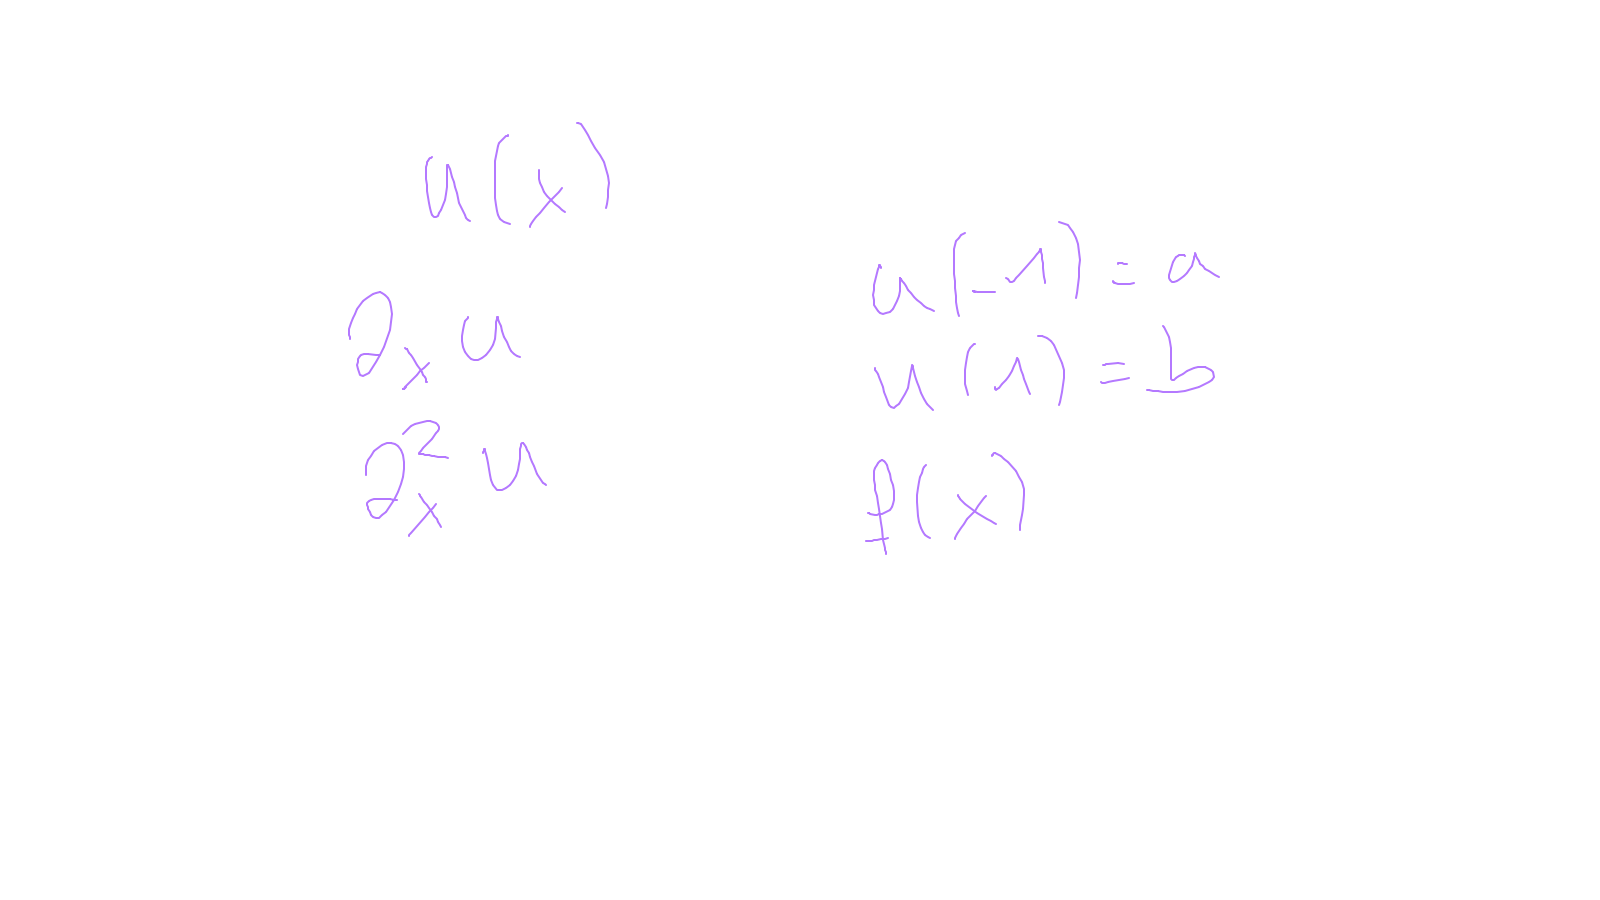 u(x)
∂ₓ u
∂ₓ² u
u(-1) = a
u(1) = b
f(x)